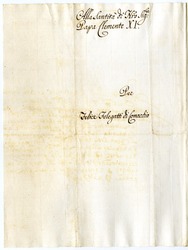 Alla Santità di N̄ro Sig.
Papa Clemente XI.
Per
Felice Felegatti di Comachio